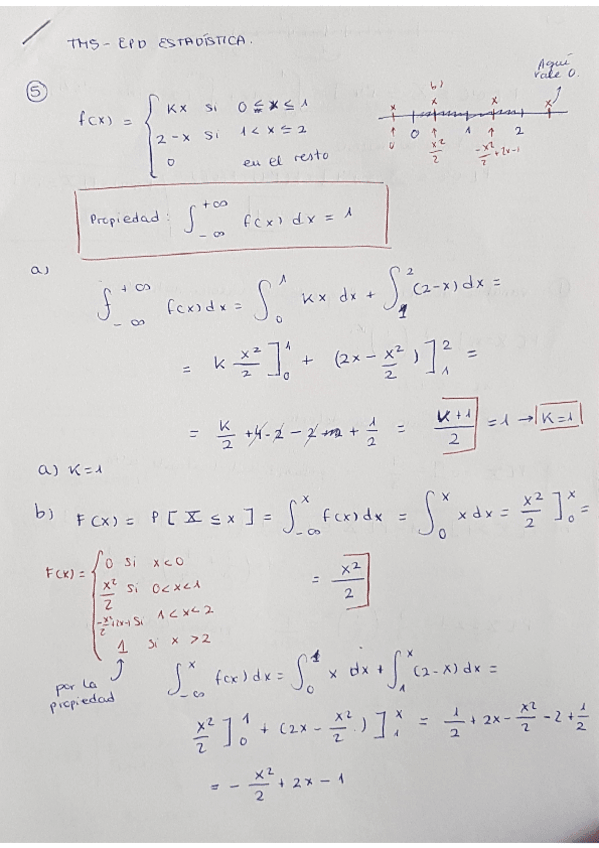 TMS - EPD ESTADÍSTICA.
Aquí vale 0.
5
f(x) = { Kx si 0 ≤ x ≤ 1
2 - x si 1 < x ≤ 2
0 en el resto
b)
x x x x
0 1 2
0 x²/2 -x²/2 + 2x - 1
Propiedad: ∫_{-∞}^{+∞} f(x) dx = 1
a)
∫_{-∞}^{+∞} f(x) dx = ∫_0^1 Kx dx + ∫_1^2 (2-x) dx =
= K x²/2 ]_0^1 + (2x - x²/2) ]_1^2 =
= K/2 + 4 - 2 - 2 + 1/2 = (K+1)/2 = 1 → K=1
a) K=1
b) F(x) = P[X ≤ x] = ∫_{-∞}^x f(x) dx = ∫_0^x x dx = x²/2 ]_0^x =
= x²/2
F(x) = { 0 si x<0
x²/2 si 0<x<1
-x²/2+2x-1 si 1<x<2
1 si x >2
por la propiedad
∫_{-∞}^x f(x) dx = ∫_0^1 x dx + ∫_1^x (2-x) dx =
x²/2 ]_0^1 + (2x - x²/2) ]_1^x = 1/2 + 2x - x²/2 - 2 + 1/2
= - x²/2 + 2x - 1